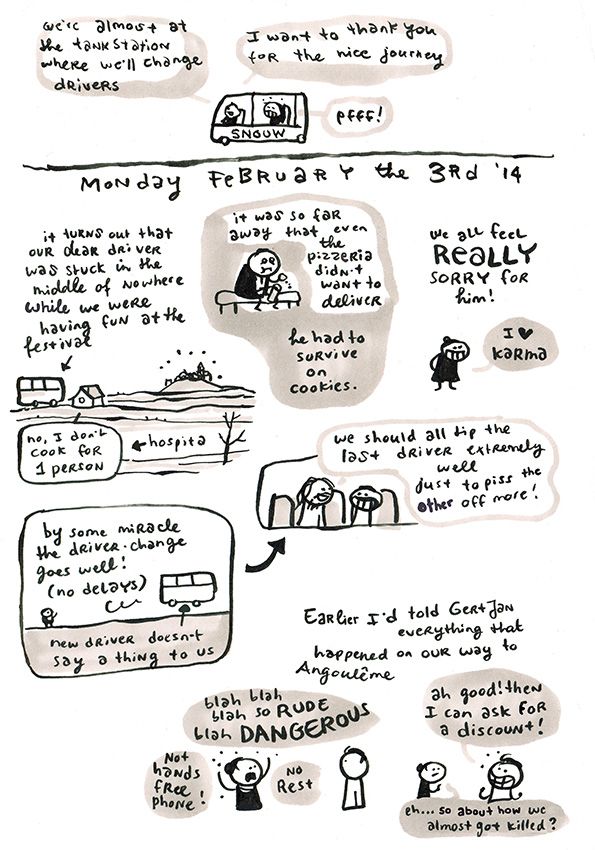 we're almost at
the tankstation
where we'll change
drivers
I want to thank you
for the nice journey
pfff!
SNOUW
Monday February the 3rd '14
it turns out that
our dear driver
was stuck in the
middle of nowhere
while we were
having fun at the
festival
it was so far
away that even
the
pizzeria
didn't
want to
deliver
he had to
survive
on
cookies.
we all feel
REALLY
sorry for
him!
I ♥
karma
no, I don't
cook for
1 person
hospita
we should all tip the
last driver extremely
well
just to piss the
other off more!
by some miracle
the driver-change
goes well!
(no delays)
new driver doesn't
say a thing to us
Earlier I'd told GertJan
everything that
happened on our way to
Angoulême
blah blah
blah so RUDE
blah DANGEROUS
Not
hands
free
phone!
No
Rest
ah good! then
I can ask for
a discount!
eh... so about how we
almost got killed?